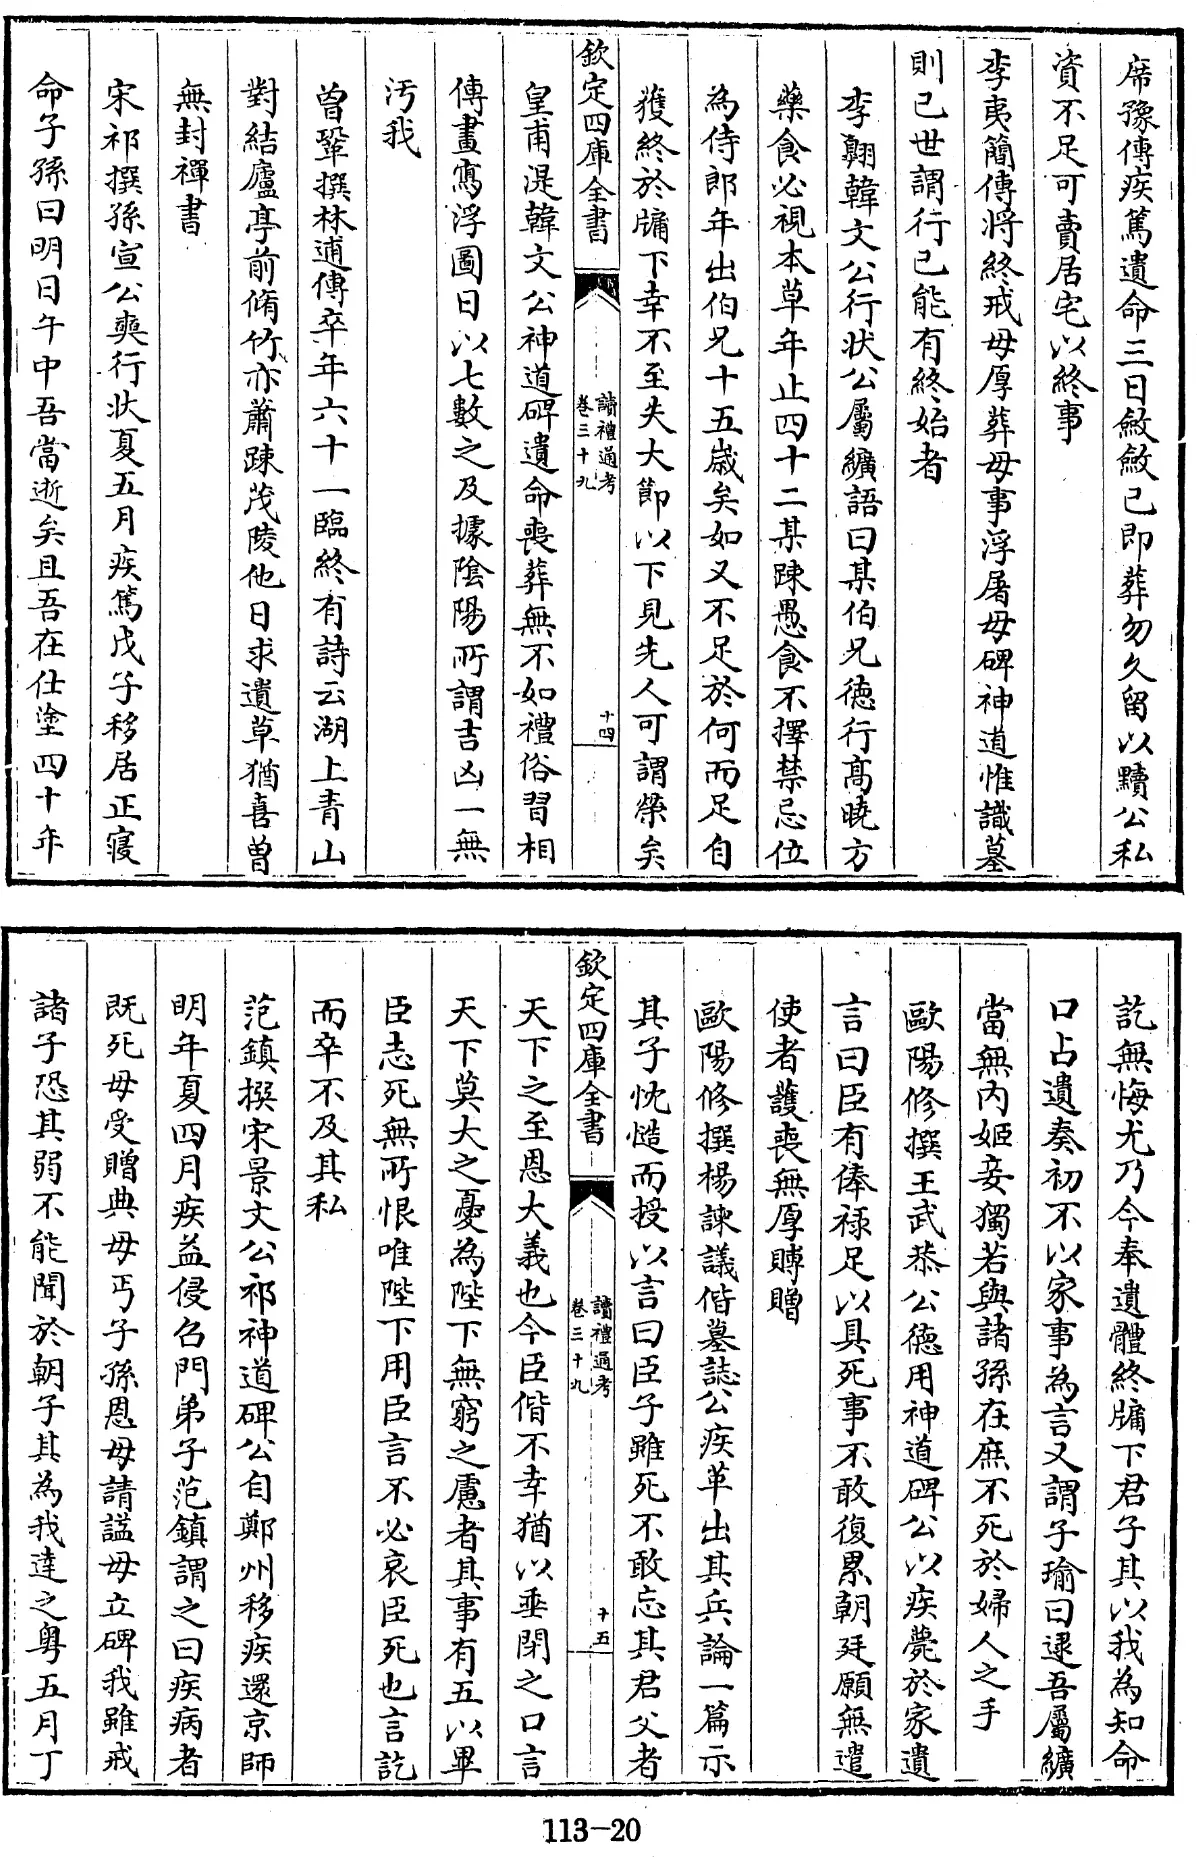 席豫傳疾篤遺命三日斂斂已即葬勿久留以黷公私
資不足可賣居宅以終事
李夷簡傳將終戒毋厚葬毋事浮屠毋碑神道惟識墓
則已世謂行已能有終始者
李翺韓文公行狀公屬纊語曰某伯兄徳行髙曉方
藥食必視本草年止四十二某踈愚食不擇禁忌位
為侍郎年出伯兄十五歳矣如又不足於何而足自
獲終於牖下幸不至失大節以下見先人可謂榮矣
欽定四庫全書
讀禮通考
卷三十九
十四
皇甫湜韓文公神道碑遺命喪葬無不如禮俗習相
傳畫寫浮圖日以七數之及據陰陽所謂吉凶一無
汚我
曾鞏撰林逋傳卒年六十一臨終有詩云湖上青山
對結廬亭前脩竹亦蕭踈茂陵他日求遺草猶喜曽
無封禪書
宋祁撰孫宣公奭行狀夏五月疾篤戊子移居正寢
命子孫曰明日午中吾當逝矣且吾在仕塗四十年
訖無悔尤乃今奉遺體終牖下君子其以我為知命
口占遺奏初不以家事為言又謂子瑜曰逮吾屬纊
當無内姬妾獨若與諸孫在庶不死於婦人之手
歐陽修撰王武恭公徳用神道碑公以疾薨於家遺
言曰臣有俸禄足以具死事不敢復累朝廷願無遣
使者護喪無厚賻贈
歐陽修撰楊諫議偕墓誌公疾革出其兵論一篇示
其子忱慥而授以言曰臣子雖死不敢忘其君父者
欽定四庫全書
讀禮通考
卷三十九
十五
天下之至恩大義也今臣偕不幸猶以垂閉之口言
天下莫大之憂為陛下無窮之慮者其事有五以畢
臣志死無所恨唯陛下用臣言不必哀臣死也言訖
而卒不及其私
范鎮撰宋景文公祁神道碑公自鄭州移疾還京師
明年夏四月疾益侵召門弟子范鎮謂之曰疾病者
既死毋受贈典毋丐子孫恩毋請諡毋立碑我雖戒
諸子恐其弱不能聞於朝子其為我達之粤五月丁
113-20